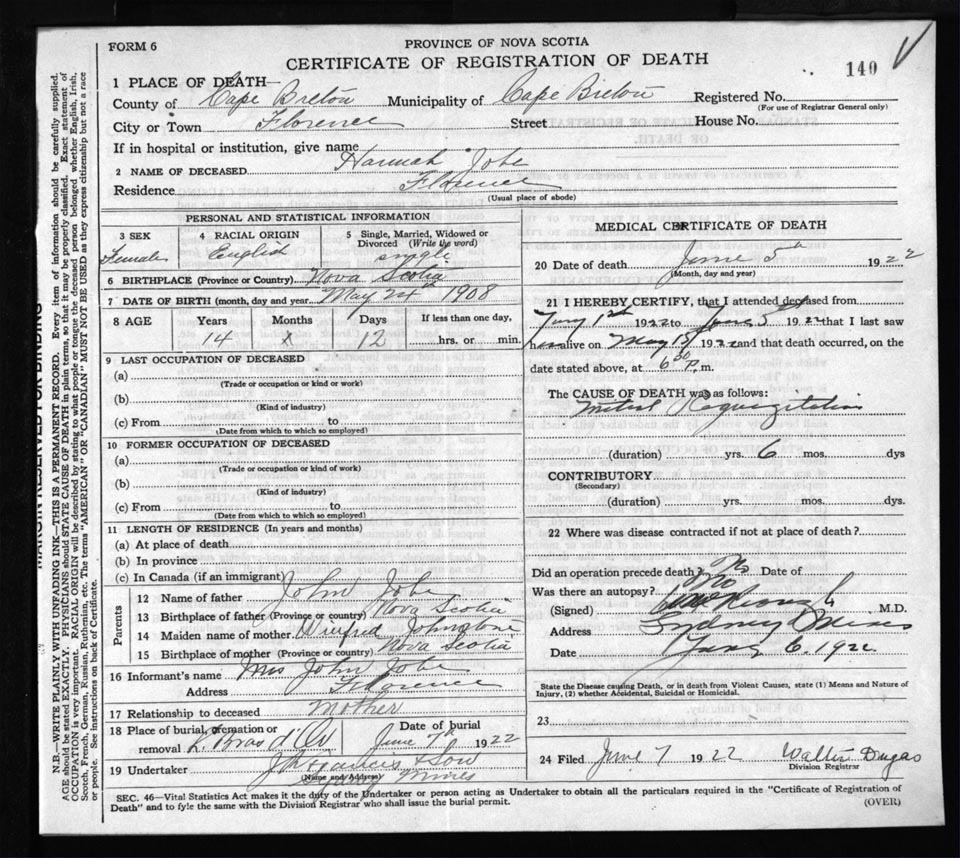 FORM 6
PROVINCE OF NOVA SCOTIA
CERTIFICATE OF REGISTRATION OF DEATH
140
1 PLACE OF DEATH—
County of Cape Breton Municipality of Cape Breton Registered No.
(For use of Registrar General only)
City or Town Florence Street House No.
If in hospital or institution, give name
2 NAME OF DECEASED Hannah Jobe
Residence Florence
(Usual place of abode)
PERSONAL AND STATISTICAL INFORMATION
3 SEX 4 RACIAL ORIGIN 5 Single, Married, Widowed or Divorced (Write the word)
Female English single
6 BIRTHPLACE (Province or Country) Nova Scotia
7 DATE OF BIRTH (month, day and year) May 24 1908
8 AGE Years Months Days If less than one day,
14 x 12 hrs. or min.
9 LAST OCCUPATION OF DECEASED
(a)
(Trade or occupation or kind or work)
(b)
(Kind of industry)
(c) From to
(Date from which to which so employed)
10 FORMER OCCUPATION OF DECEASED
(a)
(Trade or occupation or kind of work)
(b)
(Kind of industry)
(c) From to
(Date from which to which so employed)
11 LENGTH OF RESIDENCE (In years and months)
(a) At place of death
(b) In province
(c) In Canada (if an immigrant)
Parents
12 Name of father John Jobe
13 Birthplace of father (Province or country) Nova Scotia
14 Maiden name of mother Winifred Johnstone
15 Birthplace of mother (Province or country) Nova Scotia
16 Informant's name Mrs John Jobe
Address Florence
17 Relationship to deceased Mother
18 Place of burial, cremation or removal Bras d'Or Date of burial June 7th 1922
19 Undertaker & Son
(Name and Address) Sydney Mines
MEDICAL CERTIFICATE OF DEATH
20 Date of death June 5th 1922
(Month, day and year)
21 I HEREBY CERTIFY, that I attended deceased from
1st 1922 to June 5th 1922 that I last saw
her alive on May 15 1922 and that death occurred, on the
date stated above, at 6 30 P. m.
The CAUSE OF DEATH was as follows:
Mitral Regurgitation
(duration) yrs. 6 mos. dys
CONTRIBUTORY
(Secondary)
(duration) yrs. mos. dys.
22 Where was disease contracted if not at place of death?
Did an operation precede death? No Date of
Was there an autopsy? No
(Signed) M.D.
Address Sydney Mines
Date June 6. 1922
State the Disease causing Death, or in death from Violent Causes, state (1) Means and Nature of
Injury, (2) whether Accidental, Suicidal or Homicidal.
23
24 Filed June 7 1922 Walter Dugas
Division Registrar
SEC. 46—Vital Statistics Act makes it the duty of the Undertaker or person acting as Undertaker to obtain all the particulars required in the "Certificate of Registration of
Death" and to fyle the same with the Division Registrar who shall issue the burial permit.
(OVER)
MARGIN RESERVED FOR BINDING
N.B.—WRITE PLAINLY WITH UNFADING INK—THIS IS A PERMANENT RECORD. Every item of information should be carefully supplied.
AGE should be stated EXACTLY. PHYSICIANS should STATE CAUSE OF DEATH in plain terms, so that it may be properly classified. Exact statement of
OCCUPATION is very important. RACIAL ORIGIN will be described by stating to what people or tongue the deceased person belonged whether English, Irish,
Scotch, French, German, Russian, Ruthenian, etc. The terms "AMERICAN" OR "CANADIAN" MUST NOT BE USED as they express citizenship but not a race
or people. See instructions on back of Certificate.